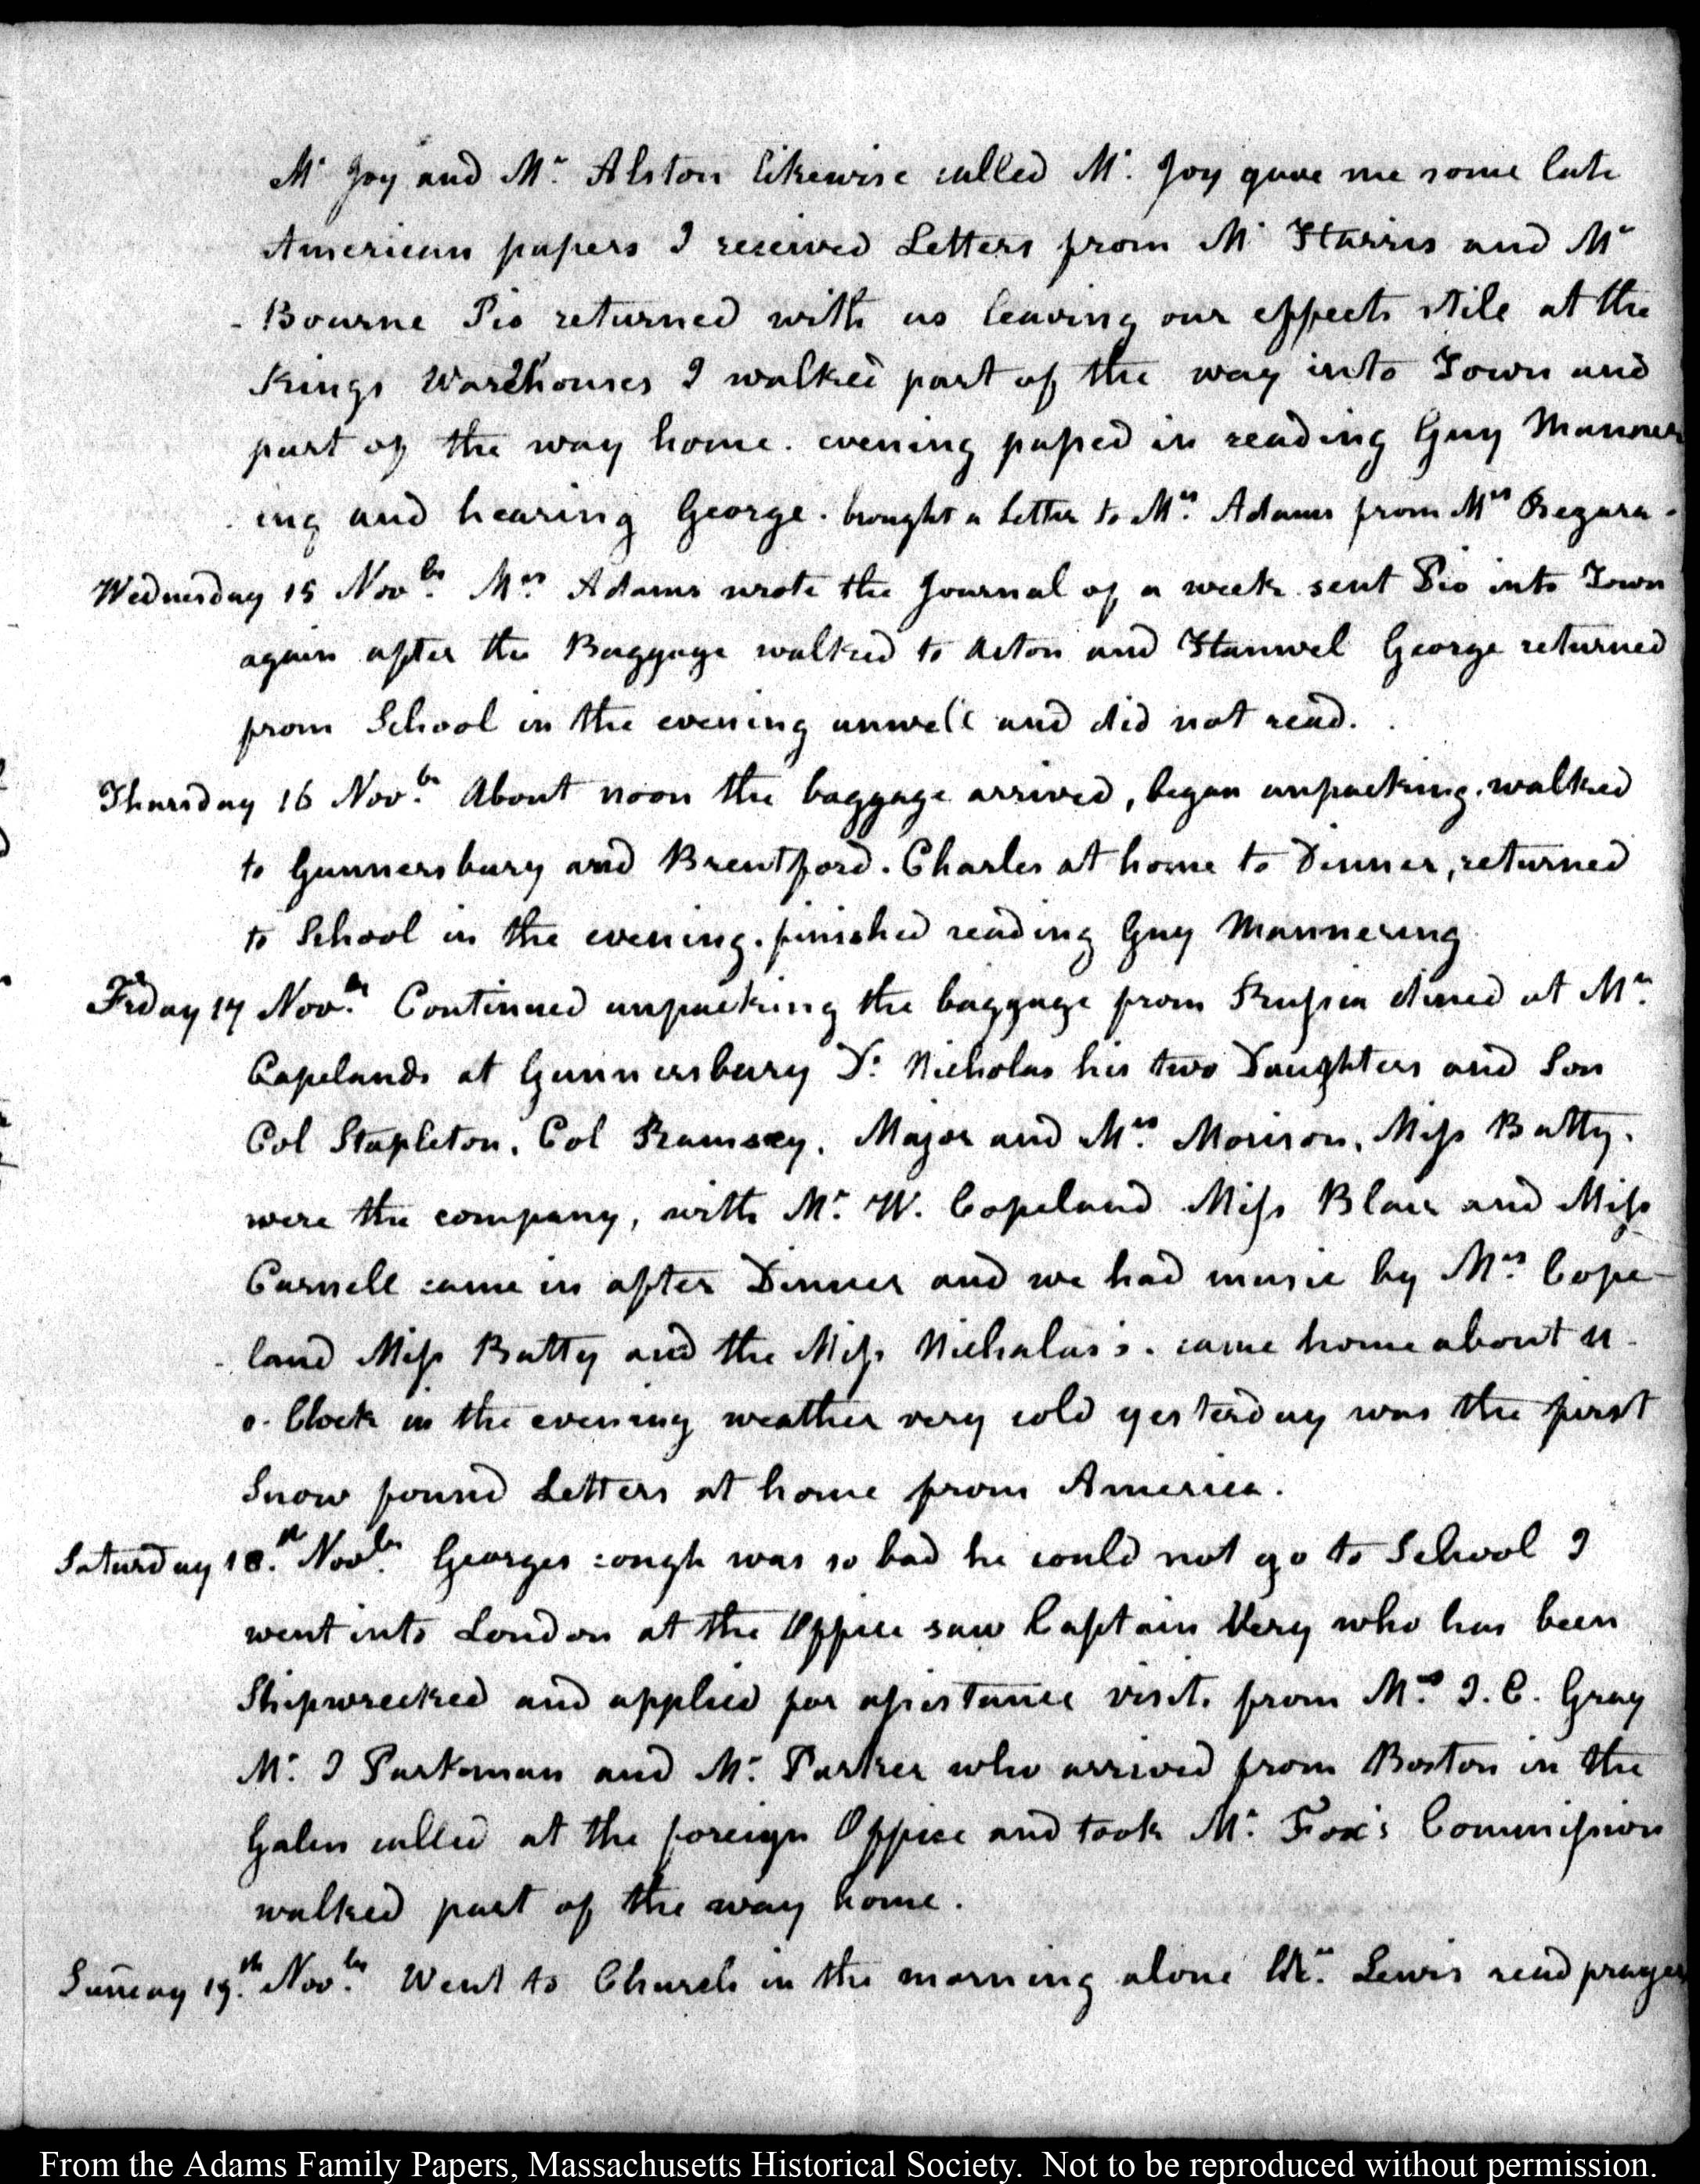 Mr Joy and Mr. Alston likewise called Mr. Joy gave me some late
American papers I received Letters from Mr Harris and Mr
Bourne Pio returned with us leaving our effects stile at the
Kings Warehouses I walked part of the way into Town and
part of the way home. evening passed in reading Guy Manner
ing and hearing George. brought a Letter to Mrs. Adams from Mrs
Wednesday 15 Novbr. Mrs. Adams wrote the Journal of a week sent Pio into Town
again after the Baggage walked to Acton and Hanwel George returned
from School in the evening unwell and did not read.
Thursday 16 Novbr. About noon the baggage arrived, began unpacking. walked
to Gunnersbury and Brentford. Charles at home to Dinner, returned
to School in the evening. finished reading Guy Mannering
Friday 17 Novbr. Continued unpacking the baggage from Russia dined at Mr.
Copelands at Gunnersbury Dr. Nicholas his two Daughters and Son
Col Stapleton. Col Ramsey. Major and Mrs. Morison. Miss Batty.
were the company, with Mr. W. Copeland Miss Blair and Miss
Carnell came in after Dinner and we had music by Mrs. Cope
land Miss Batty and the Miss Nicholas's. came home about 11
o. Clock in the evening weather very cold yesterday was the first
Snow found Letters at home from America.
Saturday 18.th Novbr. Georges cough was so bad he could not go to School I
went into London at the Office saw Captain Very who has been
Shipwrecked and applied for assistance visits from Mrs. J. C. Gray
Mr. J Parkman and Mr. Parker who arrived from Boston in the
Galen called at the foreign Office and took Mr. Fox's Commission
walked part of the way home.
Sunday 19.th Novbr. Went to Church in the morning alone Mr. Lewis read prayers
From the Adams Family Papers, Massachusetts Historical Society. Not to be reproduced without permission.